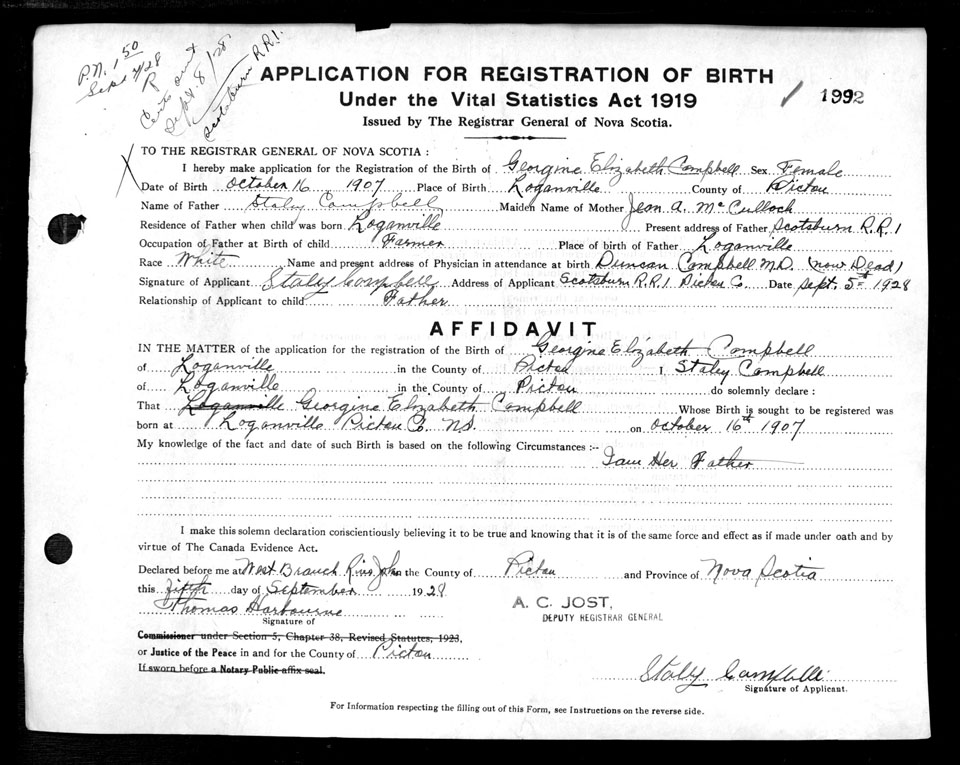 P.N. 1 50
Sept 7/28
R
Cert out
Sept. 8/28
Scotsburn R.R.1.
APPLICATION FOR REGISTRATION OF BIRTH
Under the Vital Statistics Act 1919
1992
Issued by The Registrar General of Nova Scotia.
TO THE REGISTRAR GENERAL OF NOVA SCOTIA :
I hereby make application for the Registration of the Birth of Georgine Elizabeth Campbell Sex Female
Date of Birth October 16 1907 Place of Birth Loganville County of Pictou
Name of Father Staley Campbell Maiden Name of Mother Jean A. McCulloch
Residence of Father when child was born Loganville Present address of Father Scotsburn R.R.1
Occupation of Father at Birth of child Farmer Place of birth of Father Loganville
Race White Name and present address of Physician in attendance at birth Duncan Campbell M.D. (now Dead)
Signature of Applicant Staley Campbell Address of Applicant Scotsburn R.R.1 Pictou Co. Date Sept. 5th 1928
Relationship of Applicant to child Father
AFFIDAVIT
IN THE MATTER of the application for the registration of the Birth of Georgine Elizabeth Campbell
of Loganville in the County of Pictou I, Staley Campbell
of Loganville in the County of Pictou do solemnly declare :
That Loganville Georgine Elizabeth Campbell Whose Birth is sought to be registered was
born at Loganville Pictou Co. NS. on October 16th 1907
My knowledge of the fact and date of such Birth is based on the following Circumstances :--
I am Her Father
I make this solemn declaration conscientiously believing it to be true and knowing that it is of the same force and effect as if made under oath and by
virtue of The Canada Evidence Act.
Declared before me at West Branch River John in the County of Pictou and Province of Nova Scotia
this fifth day of September 1928
A. C. JOST,
DEPUTY REGISTRAR GENERAL
Thomas Harbourne
Signature of
Commissioner under Section 5, Chapter 38, Revised Statutes, 1923,
or Justice of the Peace in and for the County of Pictou
If sworn before a Notary Public affix seal.
Staley Campbell
Signature of Applicant.
For Information respecting the filling out of this Form, see Instructions on the reverse side.